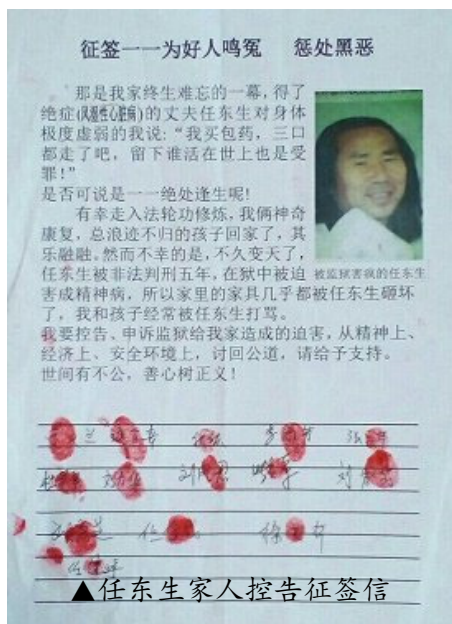 征签一一为好人鸣冤 惩处黑恶
那是我家终生难忘的一幕，得了
绝症(风湿性心脏病)的丈夫任东生对身体
极度虚弱的我说：“我买包药，三口
都走了吧，留下谁活在世上也是受
罪！”
是否可说是一一绝处逢生呢!
有幸走入法轮功修炼，我俩神奇
康复，总浪迹不归的孩子回家了，其
乐融融。然而不幸的是，不久变天了，
任东生被非法判刑五年，在狱中被迫
害成精神病，所以家里的家具几乎都被任东生砸坏
了，我和孩子经常被任东生打骂。
我要控告、申诉监狱给我家造成的迫害，从精神上、
经济上、安全环境上，讨回公道，请给予支持。
世间有不公，善心树正义！
被监狱害疯的任东生
▲任东生家人控告征签信